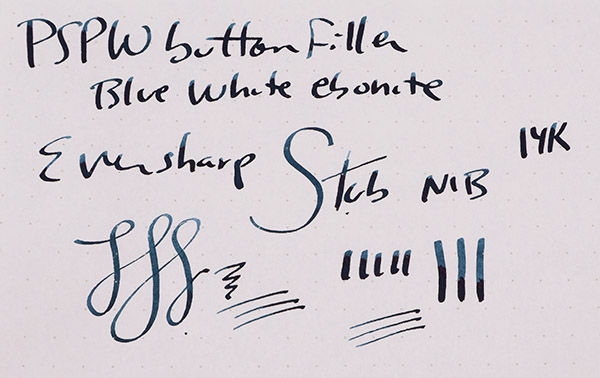 PSPW button Filler
Blue White ebonite
Eversharp Stub NIB 14K